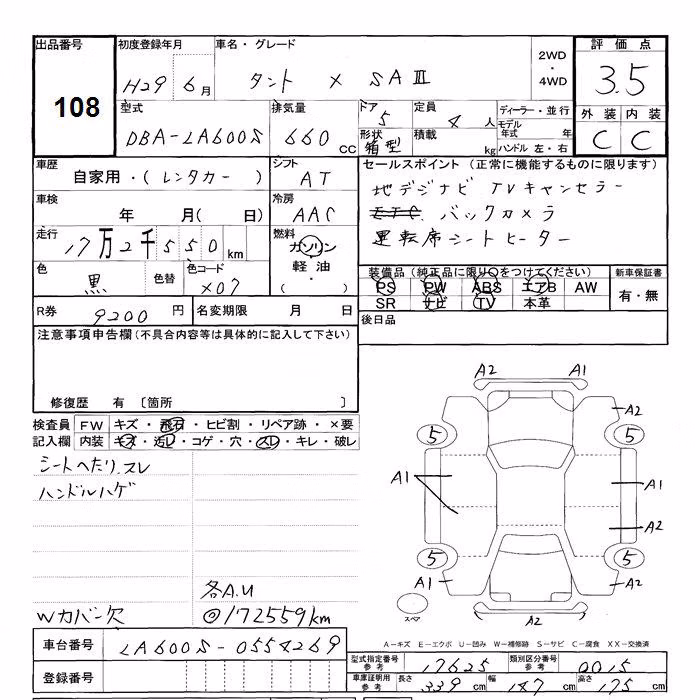 出品番号 初度登録年月 車名・グレード 2WD ・ 4WD 評価点
108 H29 6月 タント X SAⅢ 3.5
型式 排気量 ドア 定員 ディーラー・並行 外装 内装
DBA-LA600S 660cc 5 4人 モデル年式 年 C C
形状 箱型 積載 kg ハンドル 左・右
車歴 シフト セールスポイント(正常に機能するものに限ります)
自家用・(レンタカー) AT 地デジナビ TVキャンセラー
車検 冷房 ETC バックカメラ
年 月( 日) AAC 運転席シートヒーター
走行 燃料
17万2千550km ガソリン
軽油
・
( )
色 色替 色コード 装備品(純正品に限り○をつけてください) 新車保証書
黒 X07 PS PW ABS エアB AW 有・無
SR ナビ TV 本革
R券 9200円 名変期限 月 日 後日品
注意事項申告欄(不具合内容等は具体的に記入して下さい)
修復歴 有 〔箇所 〕
検査員 FW キズ・飛石・ヒビ割・リペア跡・×要
記入欄 内装 キズ・汚レ・コゲ・穴・スレ・キレ・破レ
シートへたり.スレ
ハンドルハゲ
各A.U
Wカバン欠 ◎172559km
A2 A1
A2
5 5
A1 A1
A2
5 5
A1 A2
スペア A2
A－キズ E－エクボ U－凹み W－補修跡 S－サビ C－腐食 XX－交換済
車台番号 LA600S-0554269
登録番号
型式指定番号 参考 17625 類別区分番号 参考 0015
車庫証明用 参考 長さ 339cm 幅 147cm 高さ 175cm